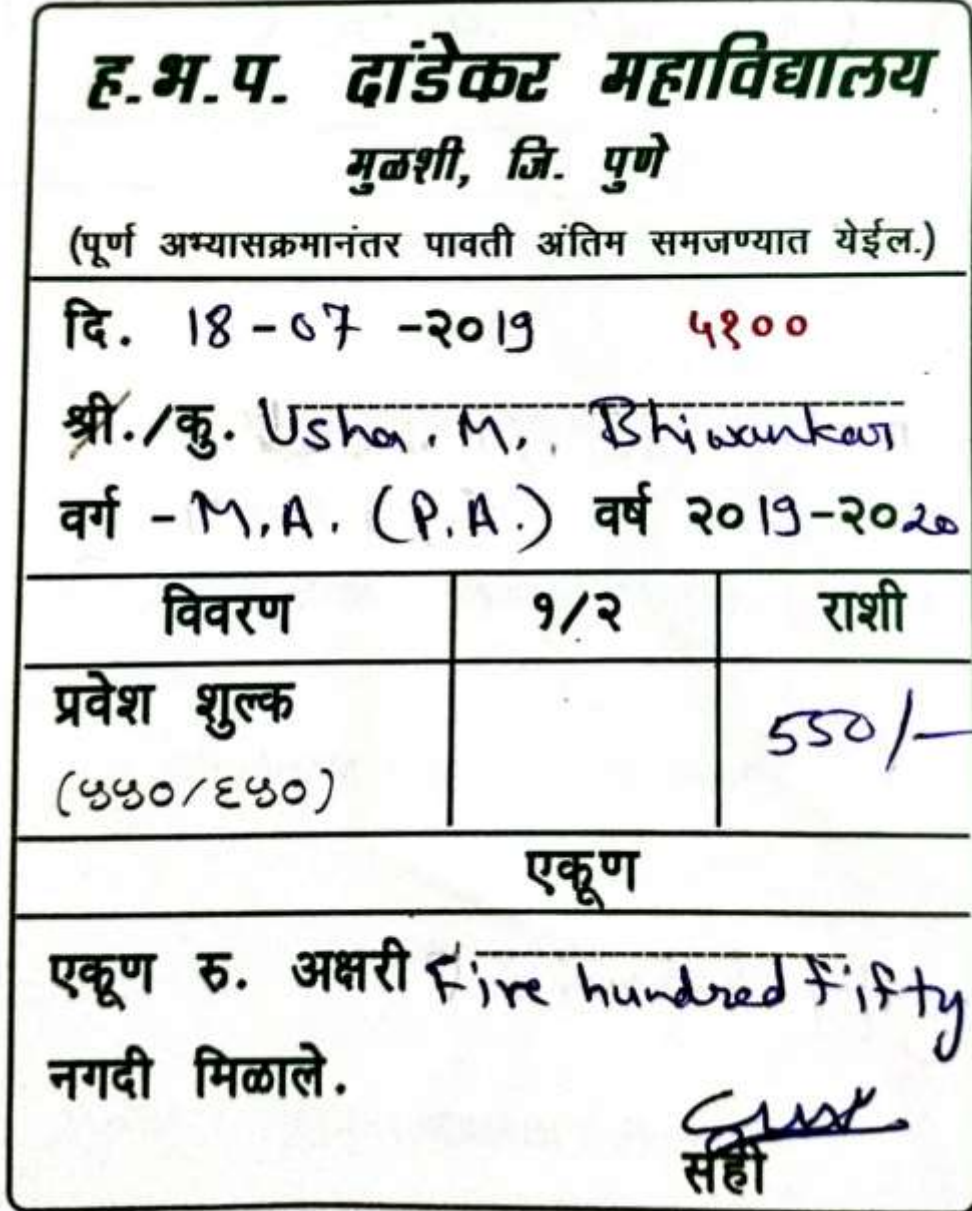 ह.भ.प. दांडेकर महाविद्यालय
मुळशी, जि. पुणे
(पूर्ण अभ्यासक्रमानंतर पावती अंतिम समजण्यात येईल.)
दि. 18-07-२०19 ५१००
श्री./कु. Usha. M.. Bhiwankar
वर्ग - M.A. (P.A.) वर्ष २०19-२०20
विवरण १/२ राशी
प्रवेश शुल्क 550/-
(५५०/६५०)
एकूण
एकूण रु. अक्षरी Five hundred Fifty
नगदी मिळाले.
सही